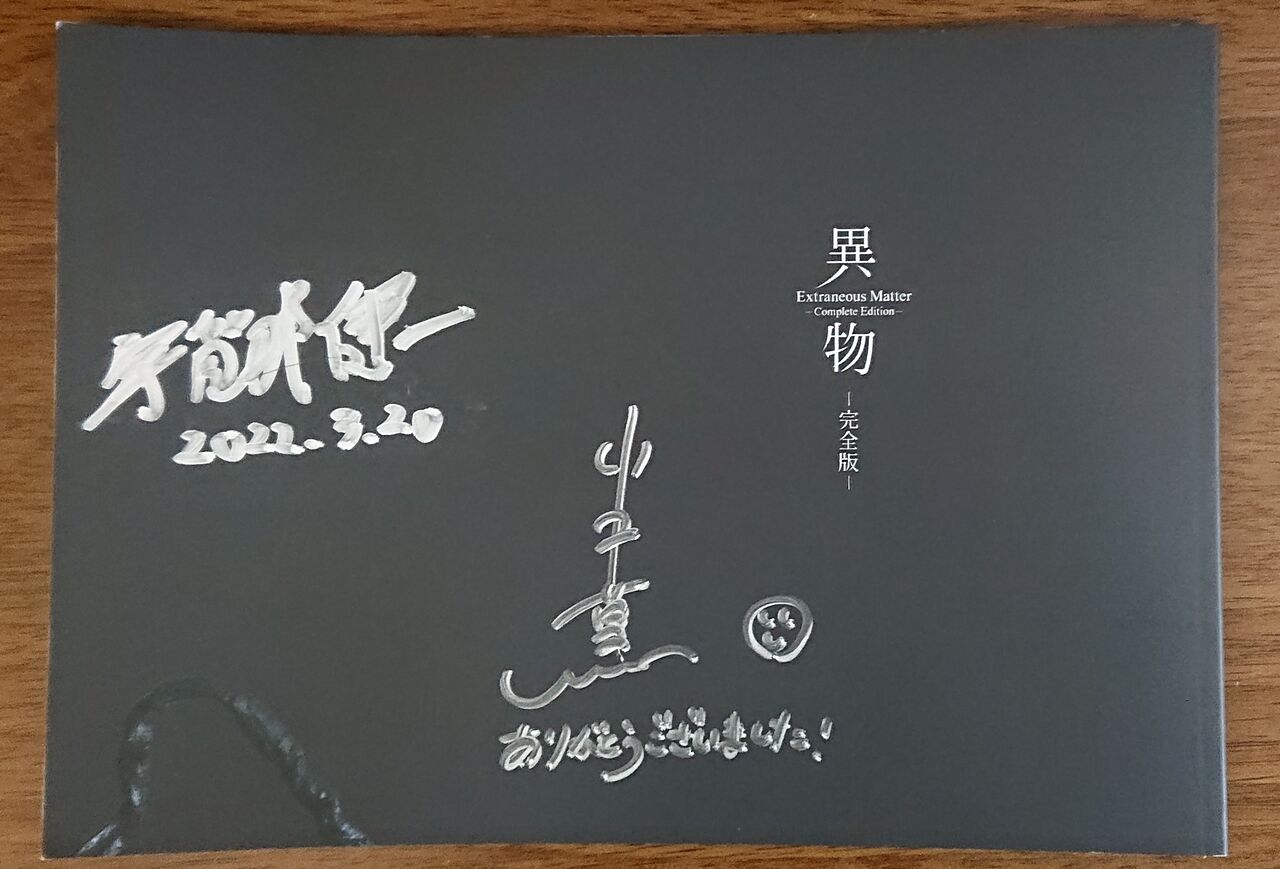 異
Extraneous Matter
－Complete Edition－
物
－完全版－
2022.3.20
ありがとうございました!